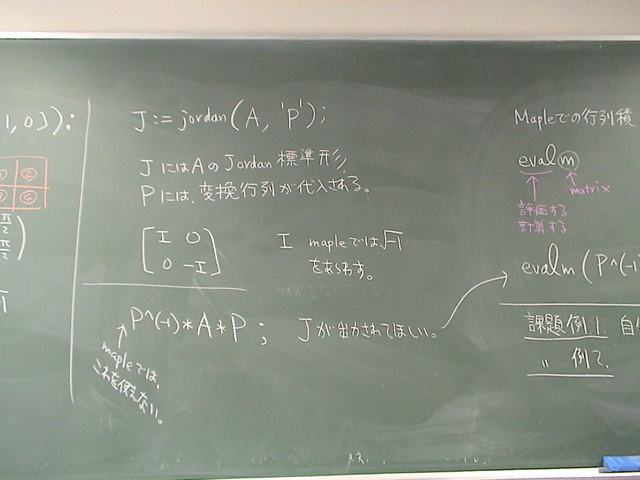 1, 0]):
J := jordan(A, 'P');
JにはAのJordan標準形,
Pには、変換行列が代入される。
[I 0
0 -I]
I mapleでは√-1
をあらわす。
P^(-1)*A*P ; Jが出力されてほしい。
mapleでは、
これを使えない。
Mapleでの行列積
evalm
matrix
評価する
計算する
evalm(P^(-1
課題例1.
〃 例2.